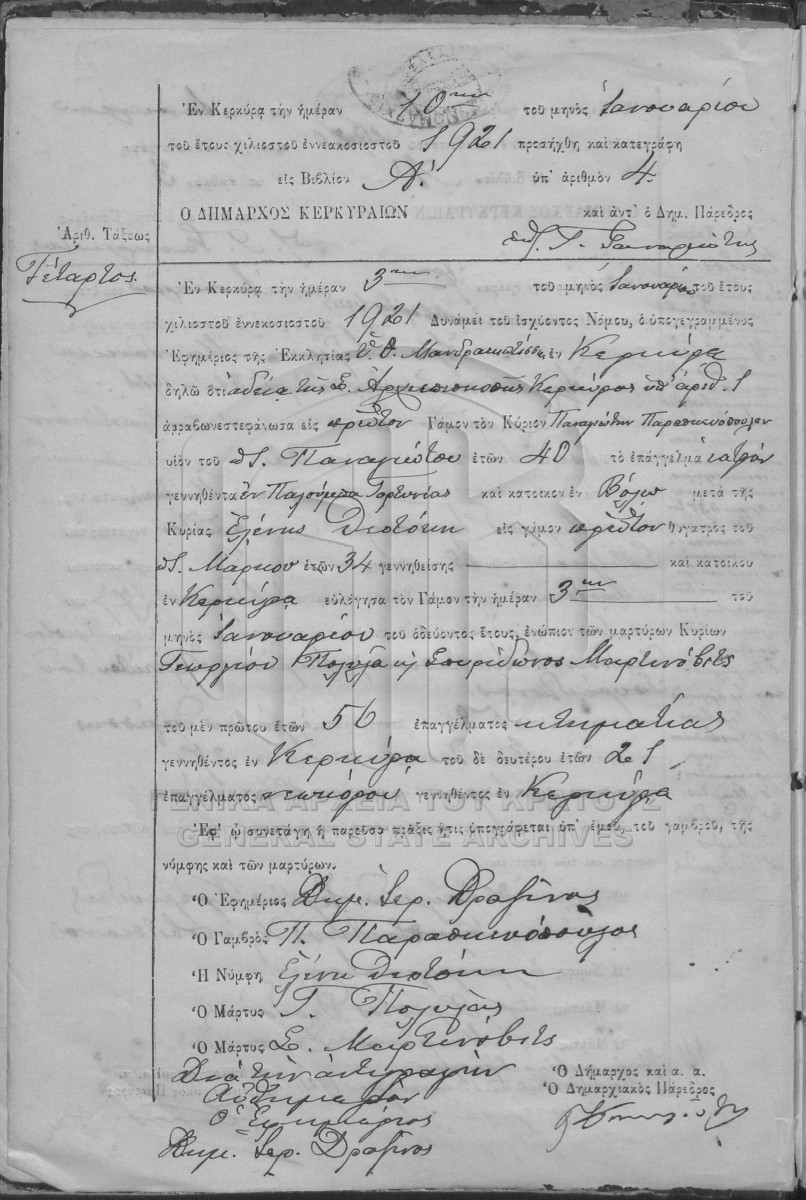 Ἐν Κερκύρᾳ τὴν ἡμέραν 10ην τοῦ μηνὸς Ἰανουαρίου
τοῦ ἔτους χιλιοστοῦ ἐννεακοσιοστοῦ 1921 προσήχθη καὶ κατεγράφη
εἰς Βιβλίον Α. ὑπ' ἀριθμὸν 4
Ο ΔΗΜΑΡΧΟΣ ΚΕΡΚΥΡΑΙΩΝ καὶ ἀντ' ὁ Δημ. Πάρεδρος
Ἀριθ. Τάξεως
Τέταρτος.
Ἐν Κερκύρᾳ τὴν ἡμέραν 3ην τοῦ μηνὸς Ἰανουαρίου τοῦ ἔτους
χιλιοστοῦ ἐννεκοσιοστοῦ 1921 Δυνάμει τοῦ ἰσχύοντος Νόμου, ὁ ὑπογεγραμμένος
Ἐφημέριος τῆς Ἐκκλησίας Ὑ. Θ. Μανδρακιωτίσσης ἐν Κερκύρᾳ
δηλῶ ὅτι ἀδείᾳ τῆς Σ. Ἀρχιεπισκοπῆς Κερκύρας ὑπ' ἀριθ. 1
ἀρραβωνεστεφάνωσα εἰς πρῶτον Γάμον τὸν Κύριον Παναγιώτην Παρασκευόπουλον
υἱὸν τοῦ Παναγιώτου ἐτῶν 40 τὸ ἐπάγγελμα ἰατρὸν
γεννηθέντα ἐν Γορτυνίας καὶ κατοικον ἐν Βόλῳ μετὰ τῆς
Κυρίας Ἑλένης Θεοτόκη εἰς γάμον πρῶτον θυγατρὸς τοῦ
Μάρκου ἐτῶν 34 γεννηθείσης καὶ κατοίκου
ἐν Κερκύρᾳ εὐλόγησα τὸν Γάμον τὴν ἡμέραν 3ην τοῦ
μηνὸς Ἰανουαρίου τοῦ ὁδεύοντος ἔτους, ἐνώπιον τῶν μαρτύρων Κυρίων
Γεωργίου Πολυλᾶ κ Σπυρίδωνος Μαρτινόβιτς
τοῦ μὲν πρώτου ἐτῶν 56 ἐπαγγέλματος κτηματίας
γεννηθέντος ἐν Κερκύρᾳ τοῦ δὲ δευτέρου ἐτῶν 21
ἐπαγγέλματος νεωκόρου γεννηθέντος ἐν Κερκύρᾳ
ΓΕΝΙΚΑ ΑΡΧΕΙΑ ΤΟΥ ΚΡΑΤΟΥΣ
GENERAL STATE ARCHIVES
Ἐφ' ᾧ συνετάγη ἡ παρεῦσα πρᾶξις ἥτις ὑπογράφεται ὑπ' ἐμοῦ, τοῦ γαμβροῦ, τῆς
νύμφης καὶ τῶν μαρτύρων.
Ὁ Ἐφημέριος Δημ. Ἱερ. Δραζῖνος
Ὁ Γαμβρὸς Π. Παρασκευόπουλος
Ἡ Νύμφη Ἑλένη Θεοτόκη
Ὁ Μάρτυς Γ. Πολυλᾶς
Ὁ Μάρτυς Σ. Μαρτινόβιτς
Διὰ τὴν ἀντιγραφὴν
Αὐθημερὸν
Ὁ Ἐφημέριος
Δημ. Ἱερ. Δραζῖνος
Ὁ Δήμαρχος καὶ α. α.
Ὁ Δημαρχιακὸς Πάρεδρος